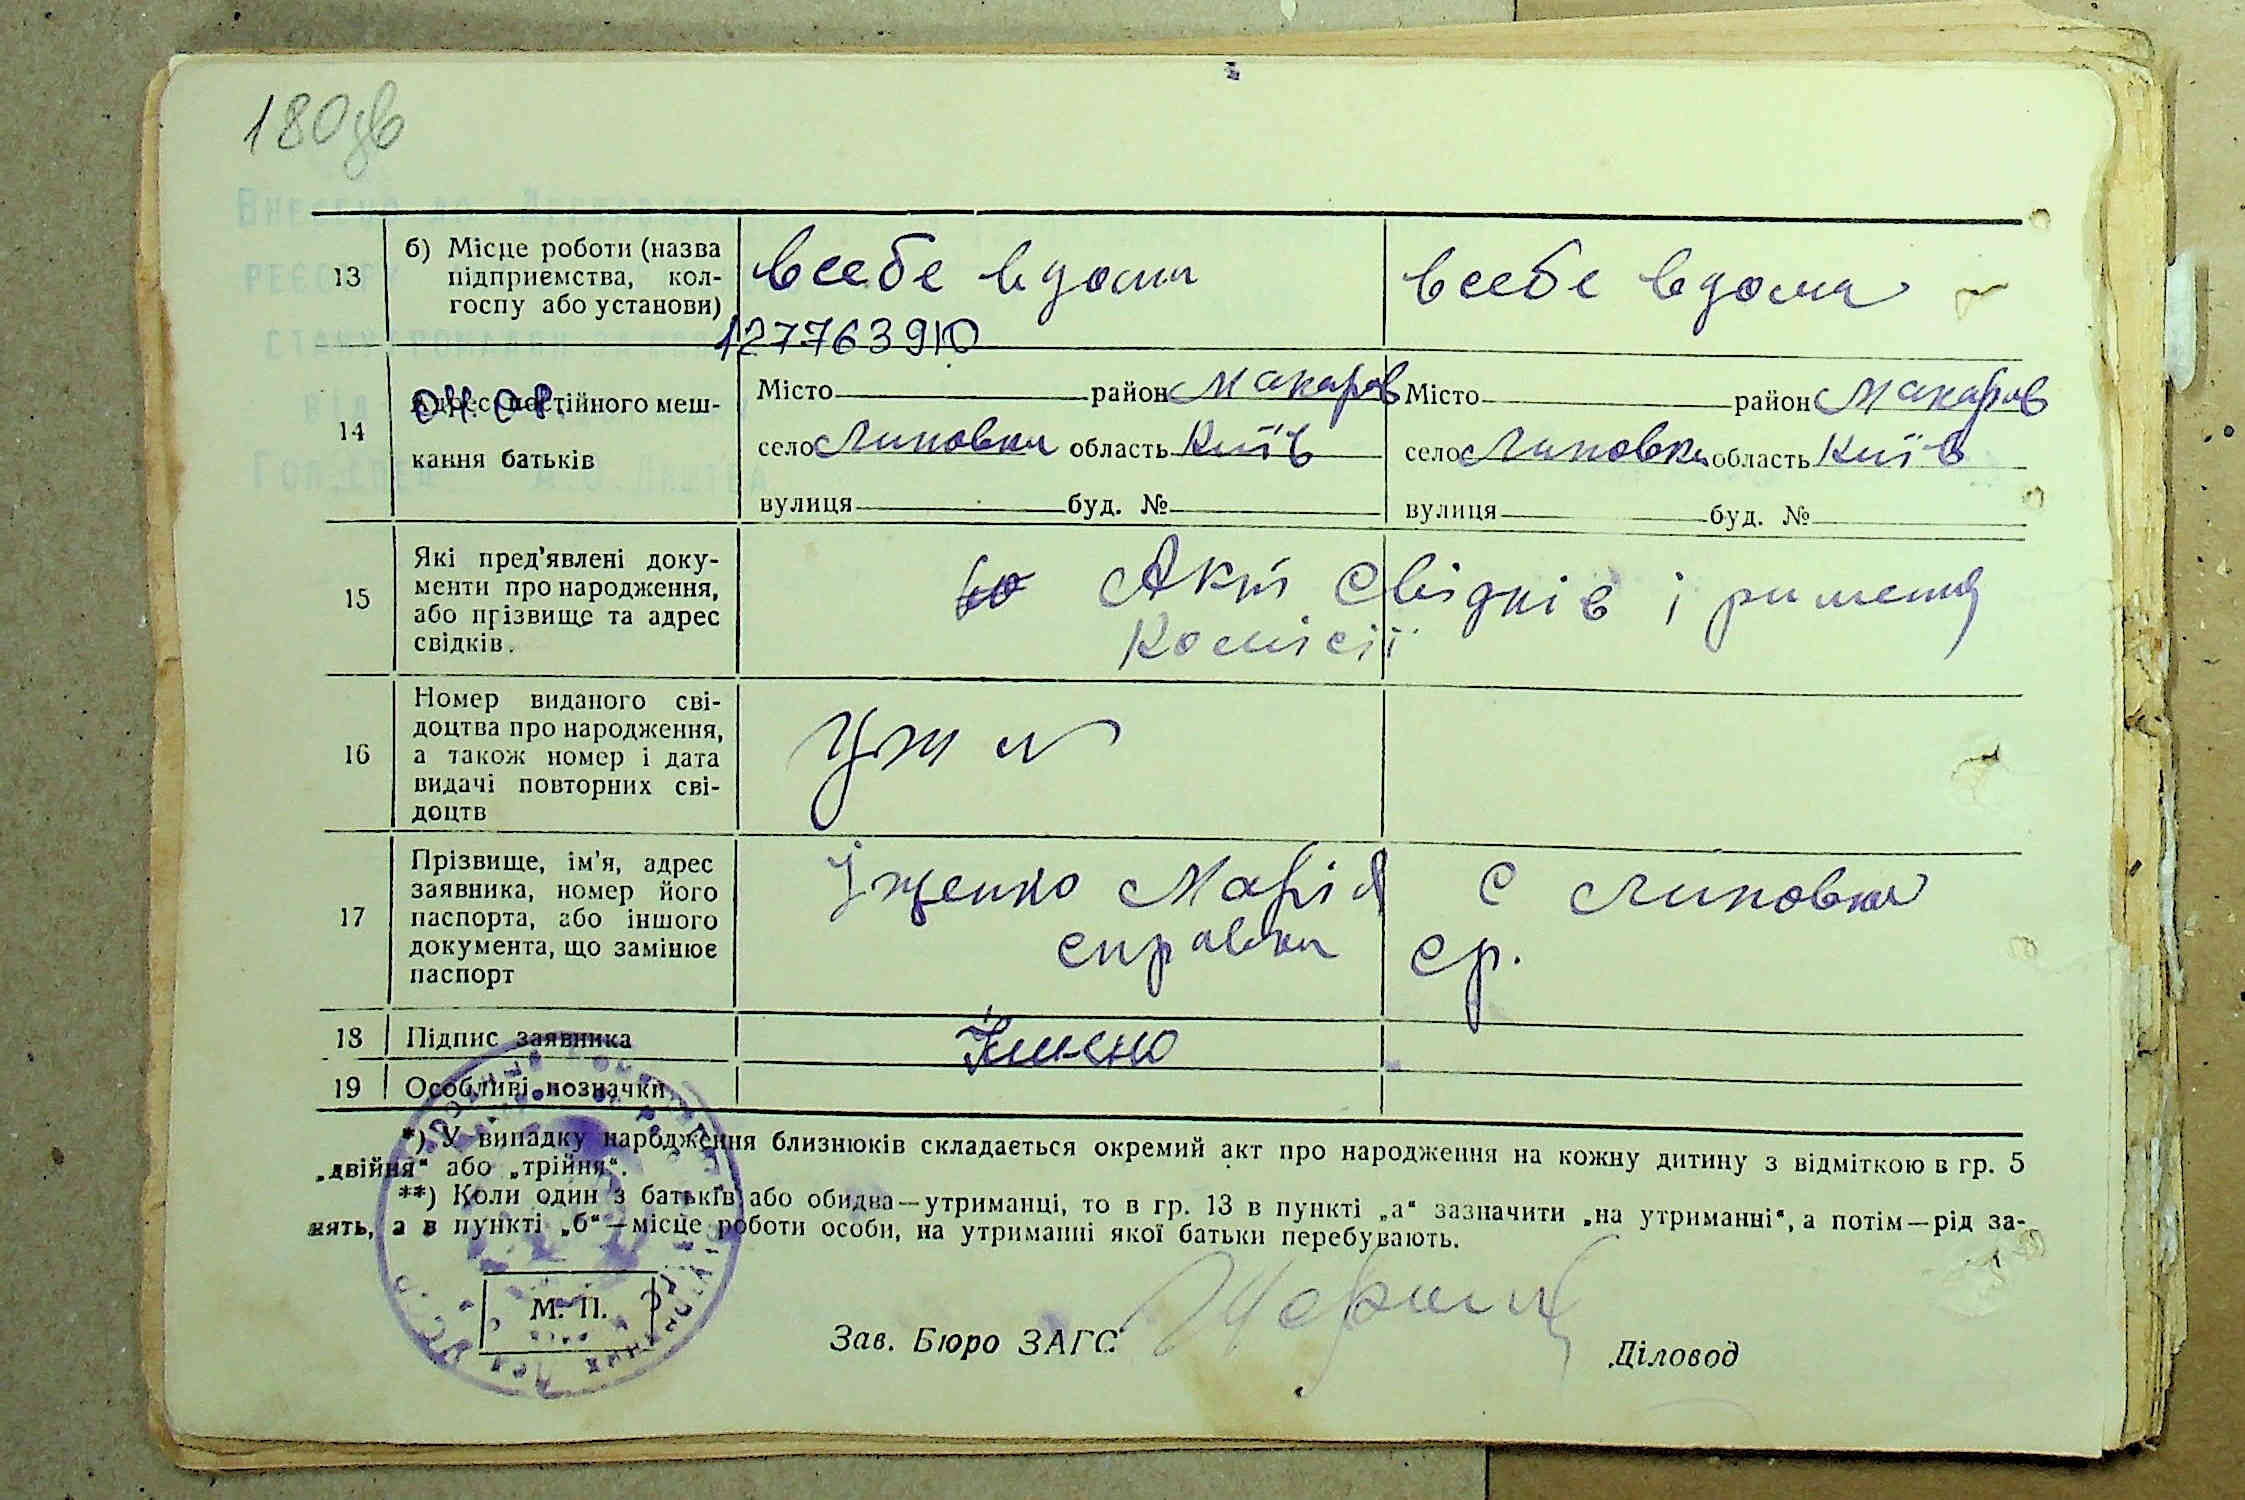 180 зв
13
б) Місце роботи (назва
підприємства, кол-
госпу або установи)
в себе вдома
в себе вдома
12776391
14
Адрес постійного меш-
кання батьків
Місто район Макарів
село Липовка область Київ
вулиця буд. №
Місто район Макарів
село Липовка область Київ
вулиця буд. №
15
Які пред'явлені доку-
менти про народження,
або прізвище та адрес
свідків.
Акт свідків і
Комісії
16
Номер виданого сві-
доцтва про народження,
а також номер і дата
видачі повторних сві-
доцтв
17
Прізвище, ім'я, адрес
заявника, номер його
паспорта, або іншого
документа, що замінює
паспорт
Іщенко Марія с Липовка
справка ср.
18
Підпис заявника
19
Особливі позначки
*) У випадку народження близнюків складається окремий акт про народження на кожну дитину з відміткою в гр. 5
„двійня“ або „трійня“.
**) Коли один з батьків або обидва—утриманці, то в гр. 13 в пункті „а“ зазначити „на утриманні“, а потім—рід за-
нять, а в пункті „б“—місце роботи особи, на утриманні якої батьки перебувають.
М. П.
Зав. Бюро ЗАГС
Діловод